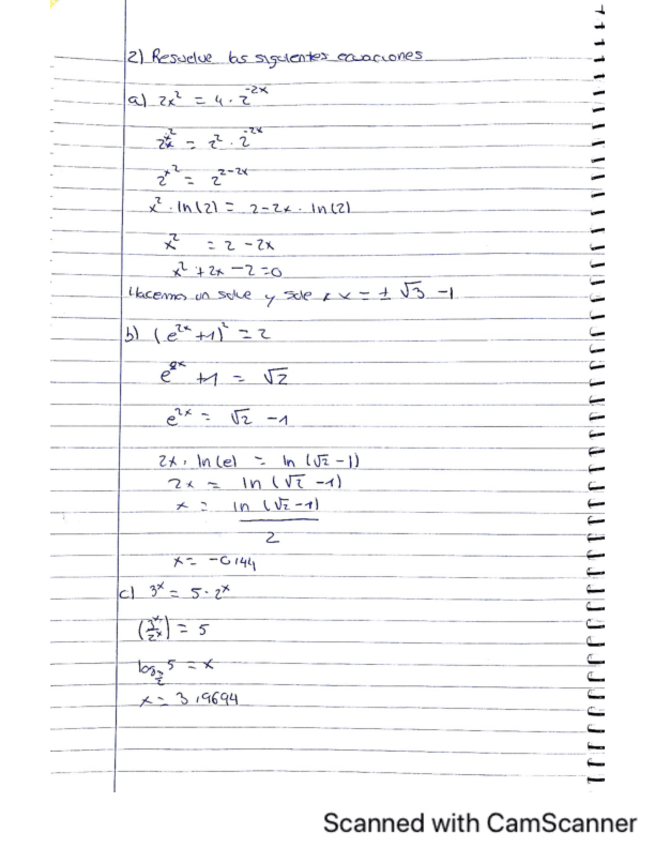 2) Resuelve las siguientes ecuaciones
a) 2x² = 4 · 2^-2x
2^x² = 2² · 2^-2x
2^x² = 2^2-2x
x² · ln(2) = 2-2x · ln(2)
x² = 2 - 2x
x² + 2x - 2 = 0
Hacemos un solve y sale x = ± √3 - 1
b) (e^2x + 1)² = 2
e^2x + 1 = √2
e^2x = √2 - 1
2x · ln(e) = ln(√2 - 1)
2x = ln(√2 - 1)
x = ln(√2 - 1)
2
x = -0,44
c) 3^x = 5 · 2^x
(3^x/2^x) = 5
log_3/2 5 = x
x = 3,9694
Scanned with CamScanner